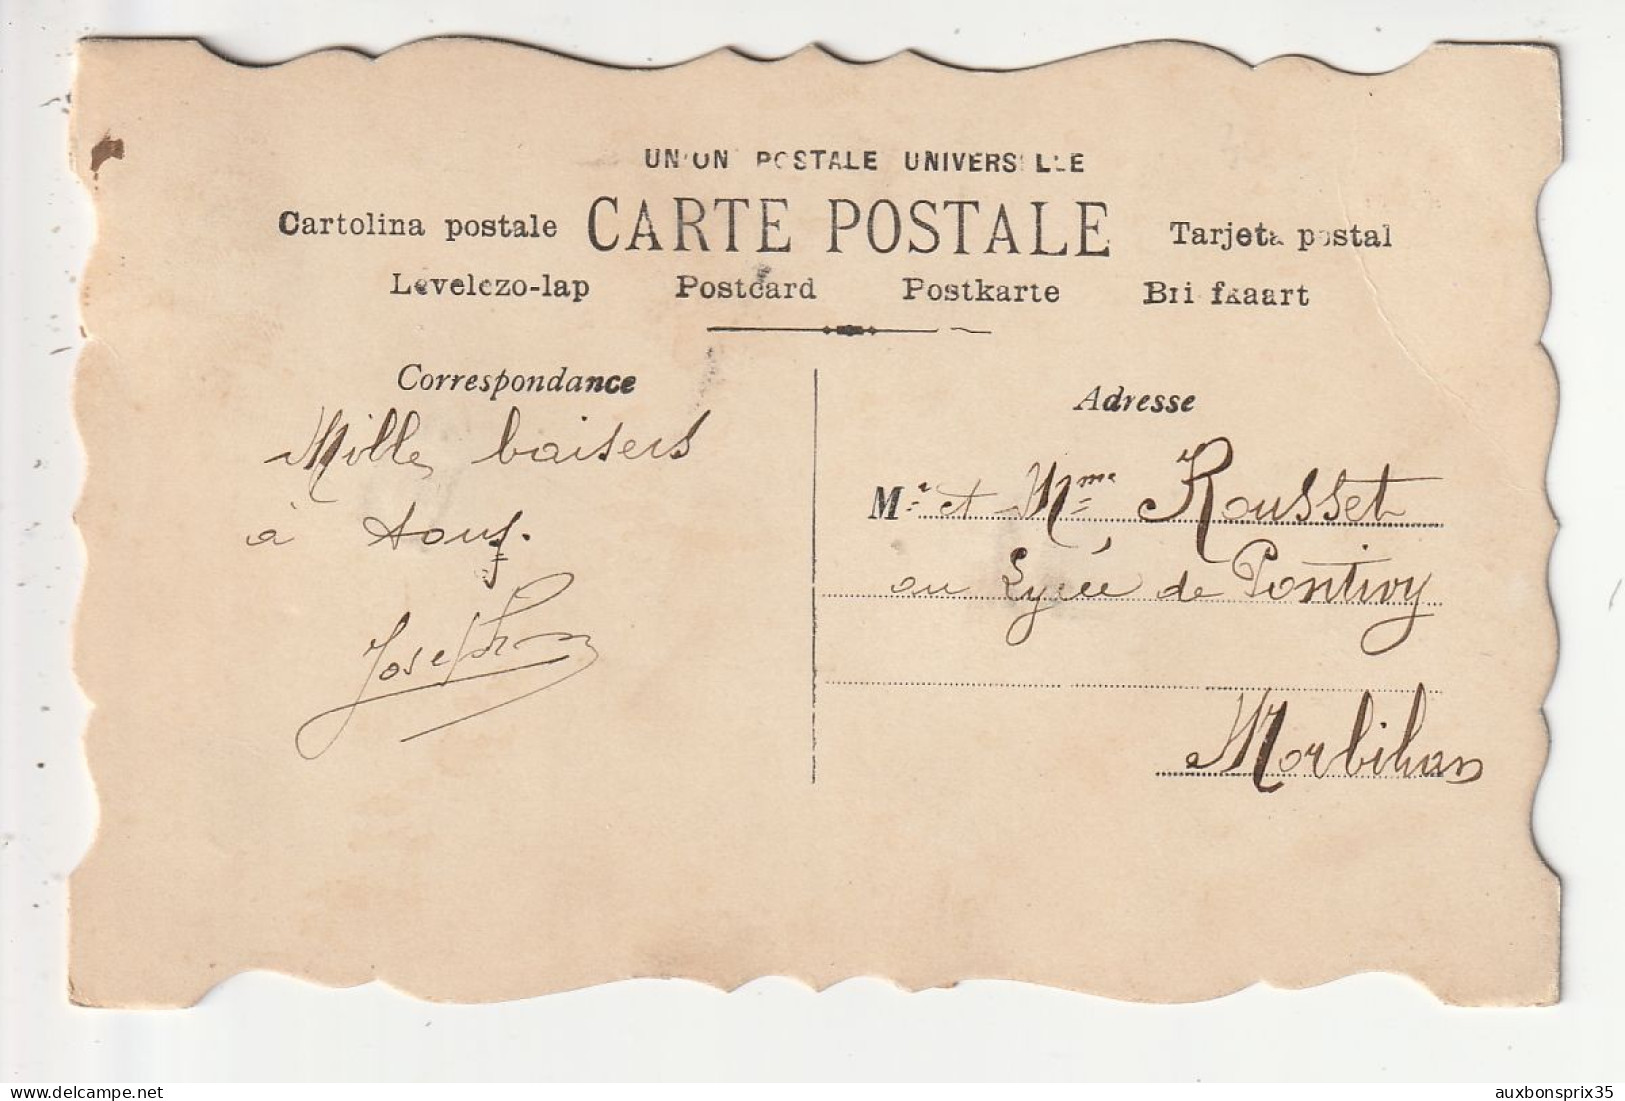 UNION POSTALE UNIVERSELLE
CARTE POSTALE
Cartolina postale
Tarjeta postal
Levelezo-lap Postcard Postkarte Briefkaart
Correspondance
Mille baisers
à tous.
Joseph
Adresse
Mr et Mme Rousset
au Lycée de Pontivy
Morbihan
delcampe.net
auxbonsprix35